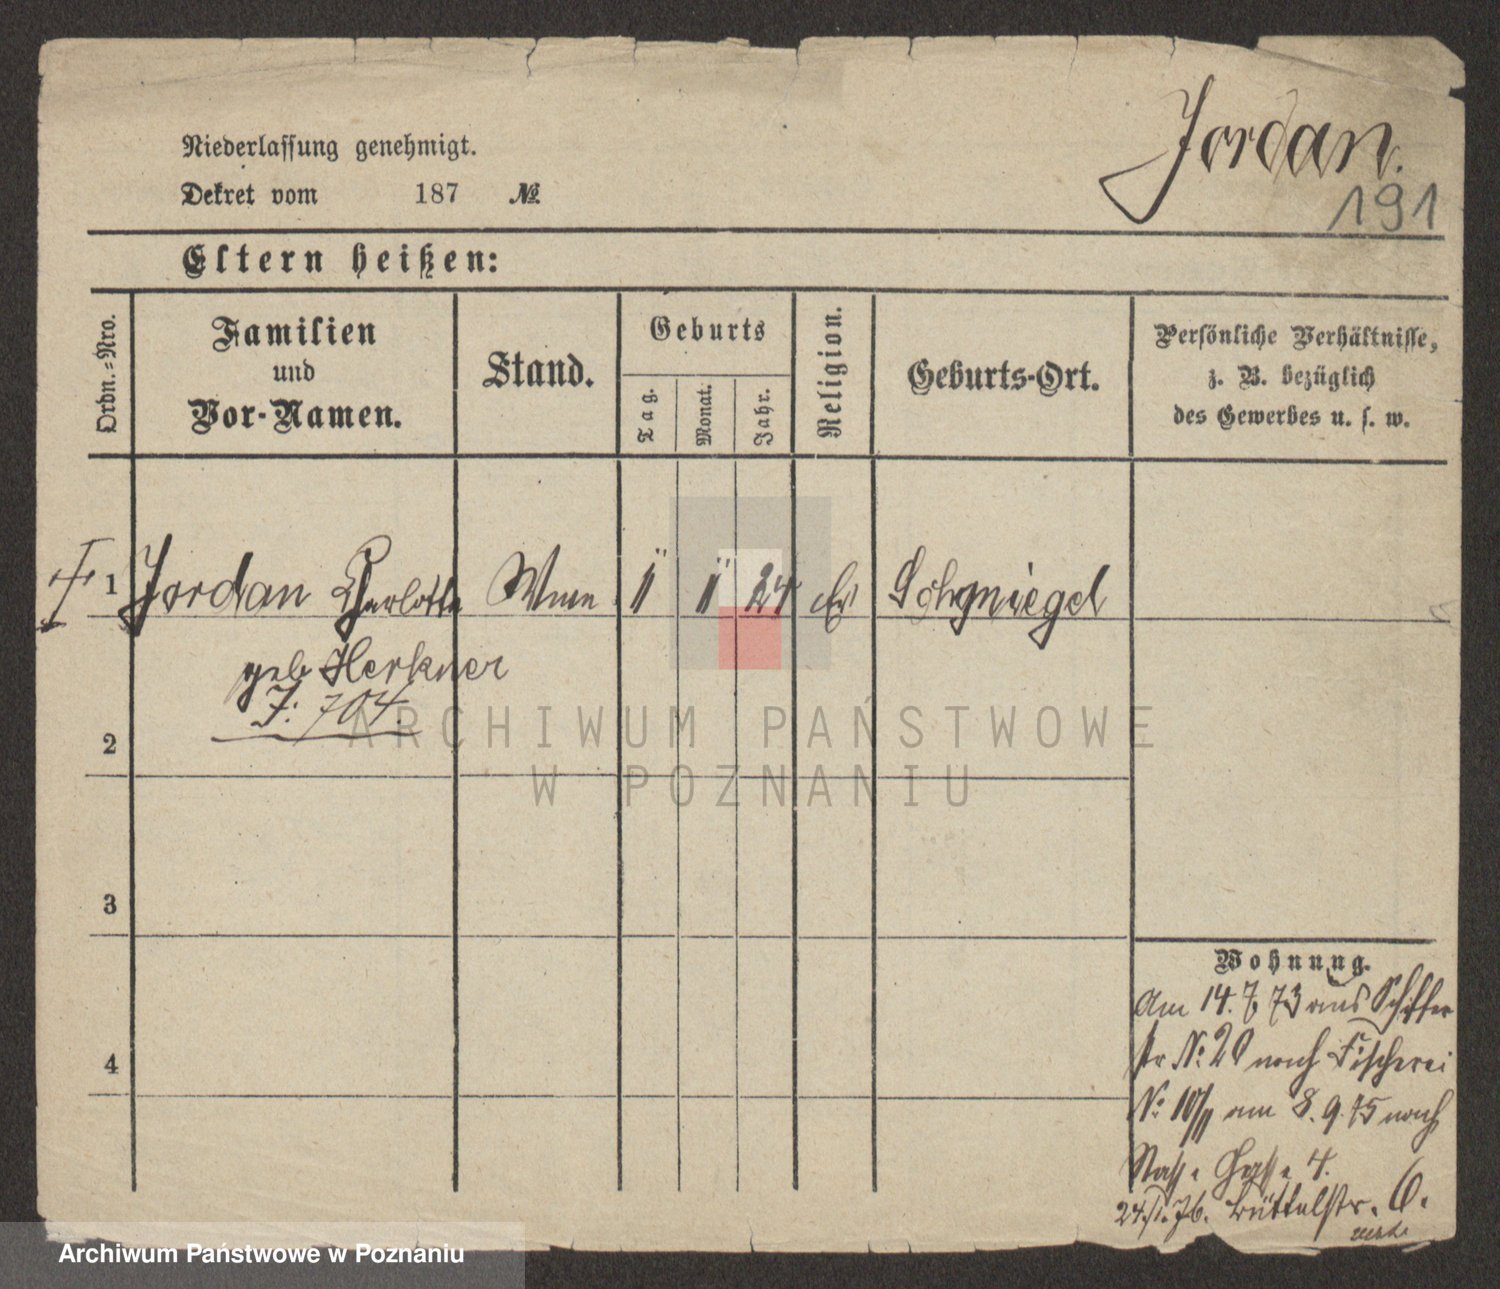 Niederlassung genehmigt.
Dekret vom 187 №
Jordan.
191
Eltern heißen:
Ordn.=Nro.
Familien
und
Vor-Namen.
Stand.
Geburts
Tag.
Monat.
Jahr.
Religion.
Geburts-Ort.
Persönliche Verhältnisse,
z. B. bezüglich
des Gewerbes u. s. w.
1 Jordan Charlotte 24 Schmiegel
geb Herkner
J: 704.
2
3
4
Wohnung.
Am 14. 7. 73 aus Schiffer
str № 20 nach Fischerei
№ 10/11 am 8. 9. 75 nach
Gasse 4.
Büttelstr. 6.
ARCHIWUM PAŃSTWOWE
W POZNANIU
Archiwum Państwowe w Poznaniu